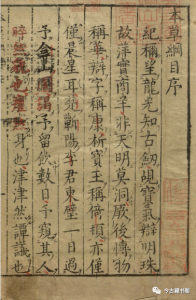 本草綱目序
紀稱望龍光知古劍覘寶氣辯明珠
故萍實商羊非天明莫洞厥後博物
稱華辯字稱康析寶玉稱倚頓亦僅
僅晨星耳楚蘄陽李君東璧一日過
予弇山園謁予留飲數日予窺其人
睟然貌也癯然身也津津然譚議也